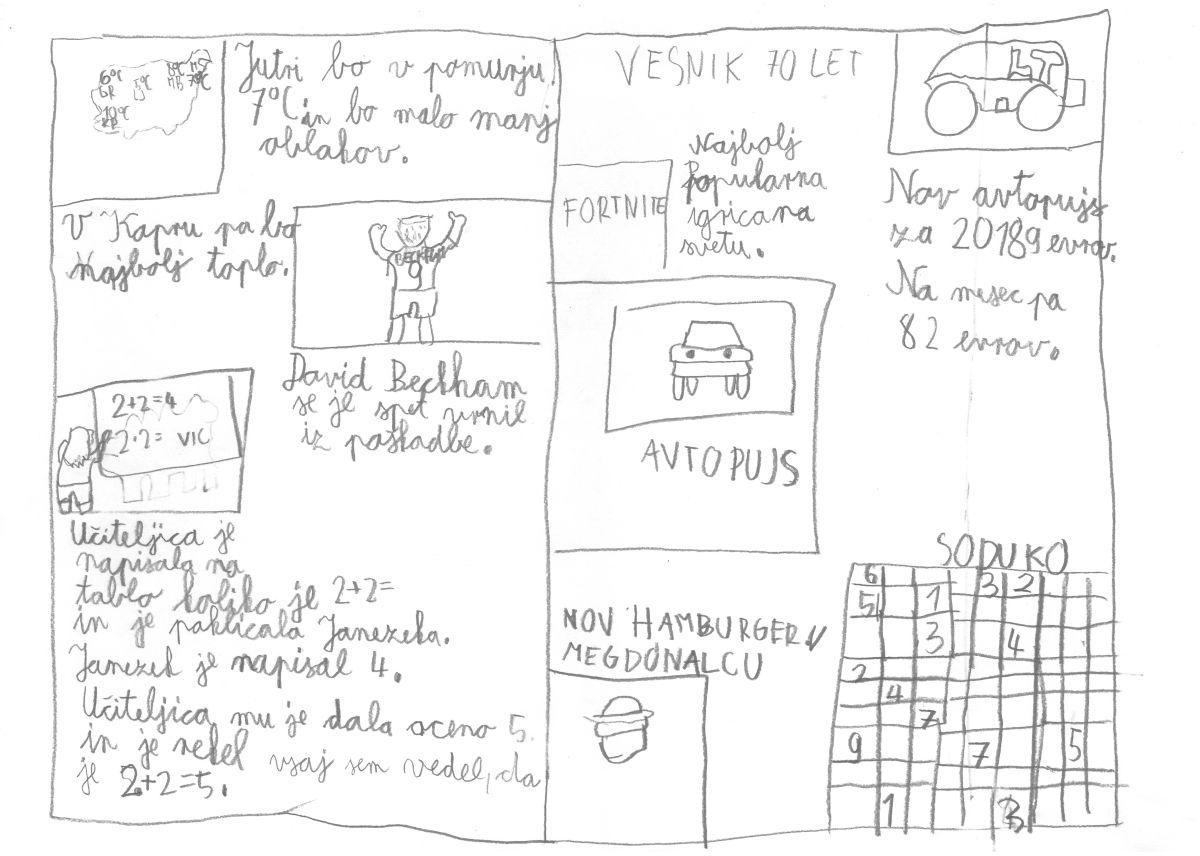 6°C
GR
5°C
LJ
8°C
MB
MS
7°C
10°C
KP
Jutri bo v pomurju
7°C in bo malo manj
oblakov.
V Kapru pa bo
Najbolj toplo.
BECKHAM
9
David Beckham
se je spet vrnil
iz poškodbe.
2+2=4
2·2= VIC
Učiteljica je
napisala na
tablo koliko je 2+2=
in je poklicala Janezeka.
Janezek je napisal 4.
Učiteljica mu je dala oceno 5.
in je rekel vsaj sem vedel, da
je 2+2=5.
VESNIK 70 LET
FORTNITE
Najbolj
Popularna
igrica na
svetu.
LT
Nov avtopujs
za 20189 evrov.
Na mesec pa
82 evrov.
AVTOPUJS
NOV HAMBURGER V
MEGDONALCU
SODUKO
6 3 2
5 1
3 4
2
4
7
9 7 5
1 3